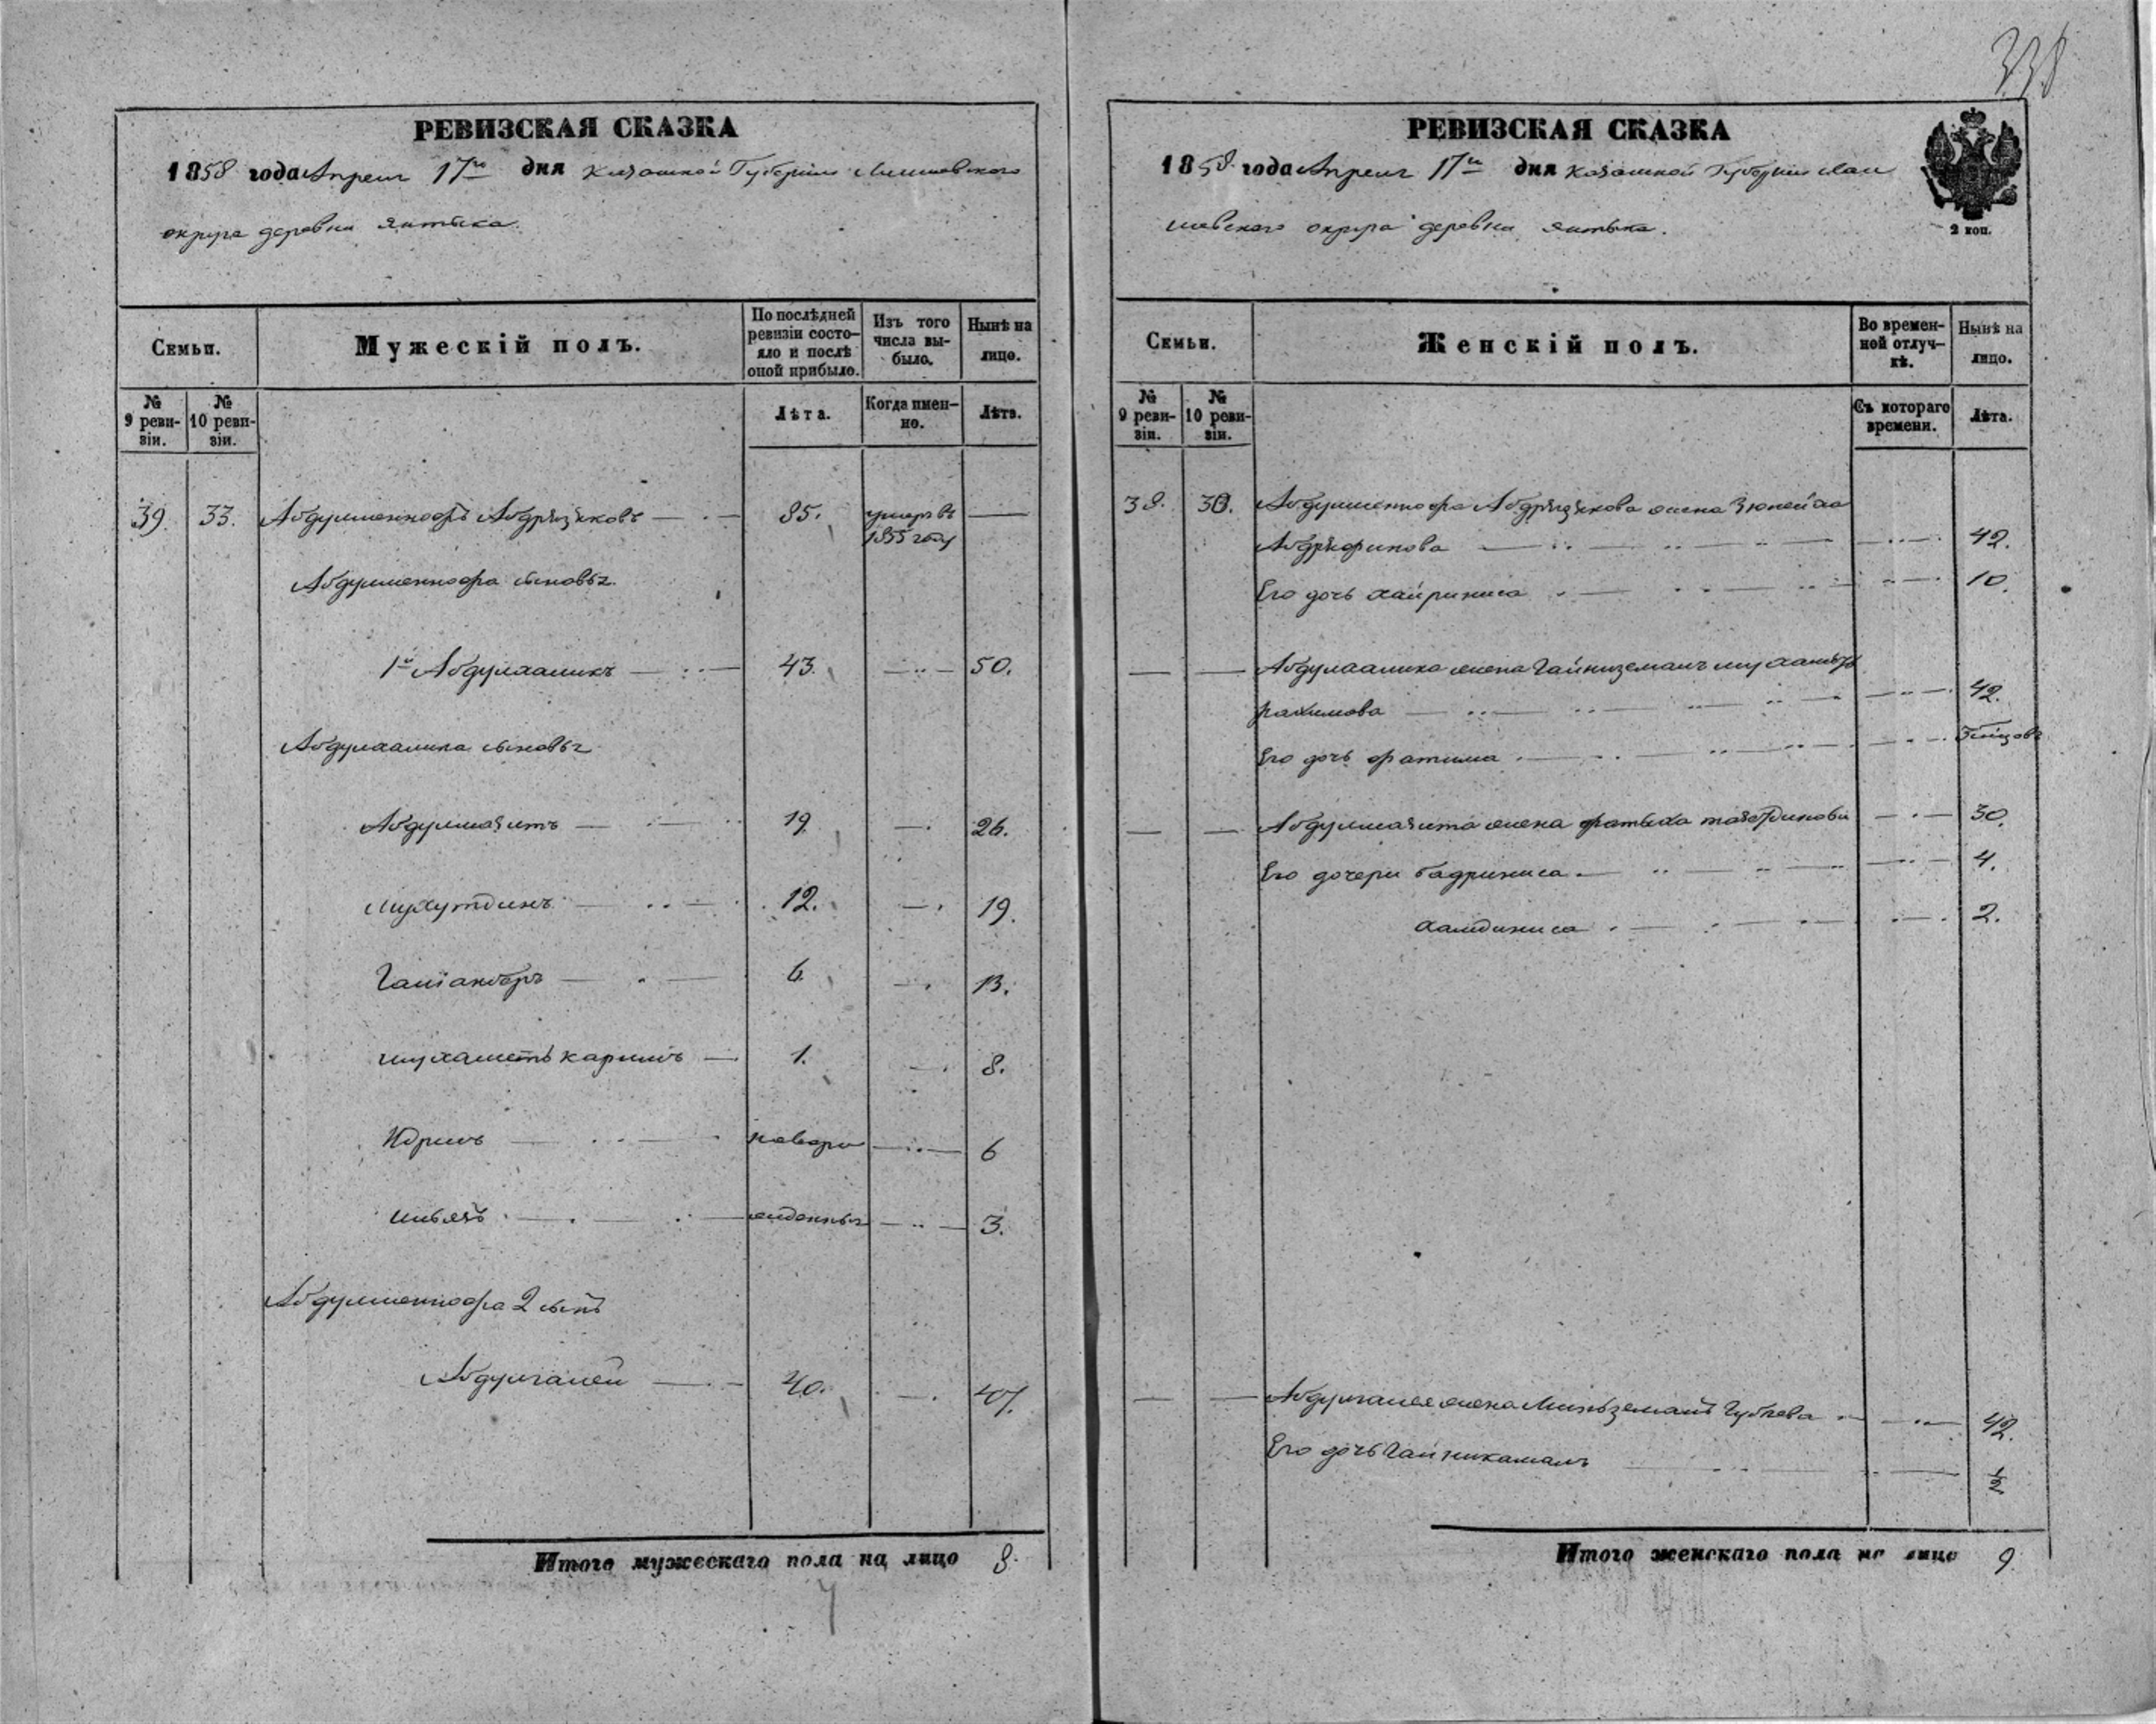 338
РЕВИЗСКАЯ СКАЗКА
1858 года Апреля 17го дня Казанской Губернии Лаишевского
округа деревни Янтыка.
Семьи.
Мужескій полъ.
По послѣдней ревизіи состо-яло и послѣ оной прибыло.
Изъ того числа вы-было.
Нынѣ на лицо.
№ 9 реви-зіи.
№ 10 реви-зіи.
Лѣта.
Когда имен-но.
Лѣта.
39. 33. Абдулменнафъ Абдрязяковъ 85. умеръ въ 1855 году
Абдулменнафа сыновья
1й Абдулхаликъ 43. 50.
Абдулхалика сыновья
Абдулмазитъ 19. 26.
Мухутдинъ 12. 19.
Галіакберъ 6. 13.
Мухаметь каримъ 1. 8.
Идрисъ новоро 6
Ильязъ жденныя 3.
Абдулменнафа 2 сынъ
Абдулганей 40. 47.
Итого мужескаго пола на лицо 8.
РЕВИЗСКАЯ СКАЗКА
1858 года Апреля 17го дня Казанской Губернии Лаи
шевского округа деревни Янтыка.
2 коп.
Семьи.
Женскій полъ.
Во времен-ной отлуч-кѣ.
Нынѣ на лицо.
№ 9 реви-зіи.
№ 10 реви-зіи.
Съ котораго времени.
Лѣта.
39. 33. Абдулменнафа Абдрязякова жена Зюпейда
42.
Его дочь Хайриниса 10.
Абдулхалика жена Гайниземалъ
Рахимова 42.
Его дочь Фатима
Абдулмазита жена Фатыха Тазетдинова 30.
Его дочери Бадриниса 4.
Хамдиниса 2.
Абдулганея жена Минлеземалъ Губаева 42.
Его дочь Гайникамалъ ½
Итого женскаго пола на лицо 9.